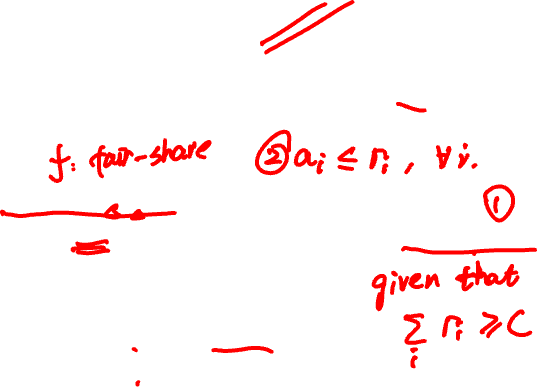 f: fair-share ② aᵢ ≤ rᵢ, ∀i.
①
given that
∑ᵢ rᵢ ≥ C